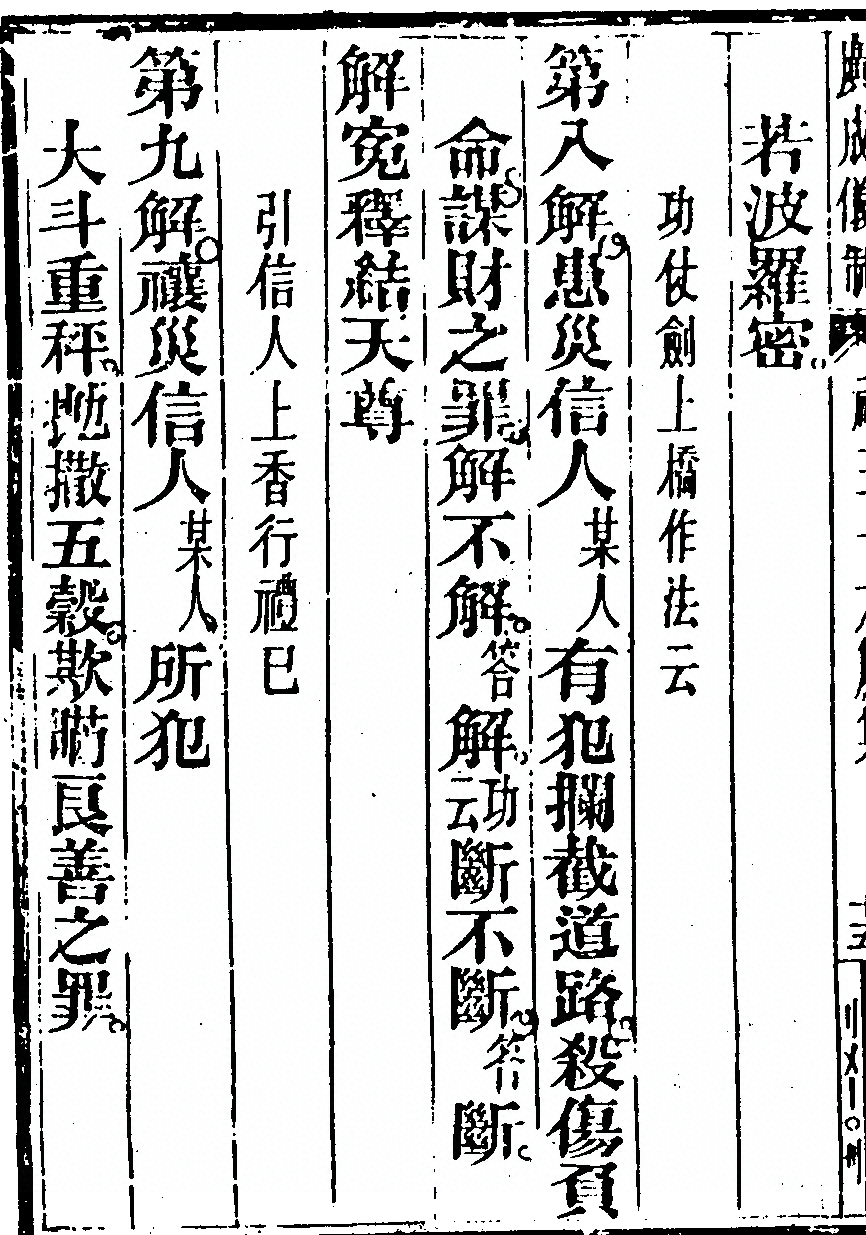 若波羅密
功仗劍上橋作法云
第八解患災信人某人有犯攔截道路殺傷頁
命謀財之罪解不解答解功云斷不斷答斷
解寃釋結天尊
引信人上香行禮巳
第九解禳災信人某人所犯
大斗重秤抛撒五穀欺瞞良善之罪